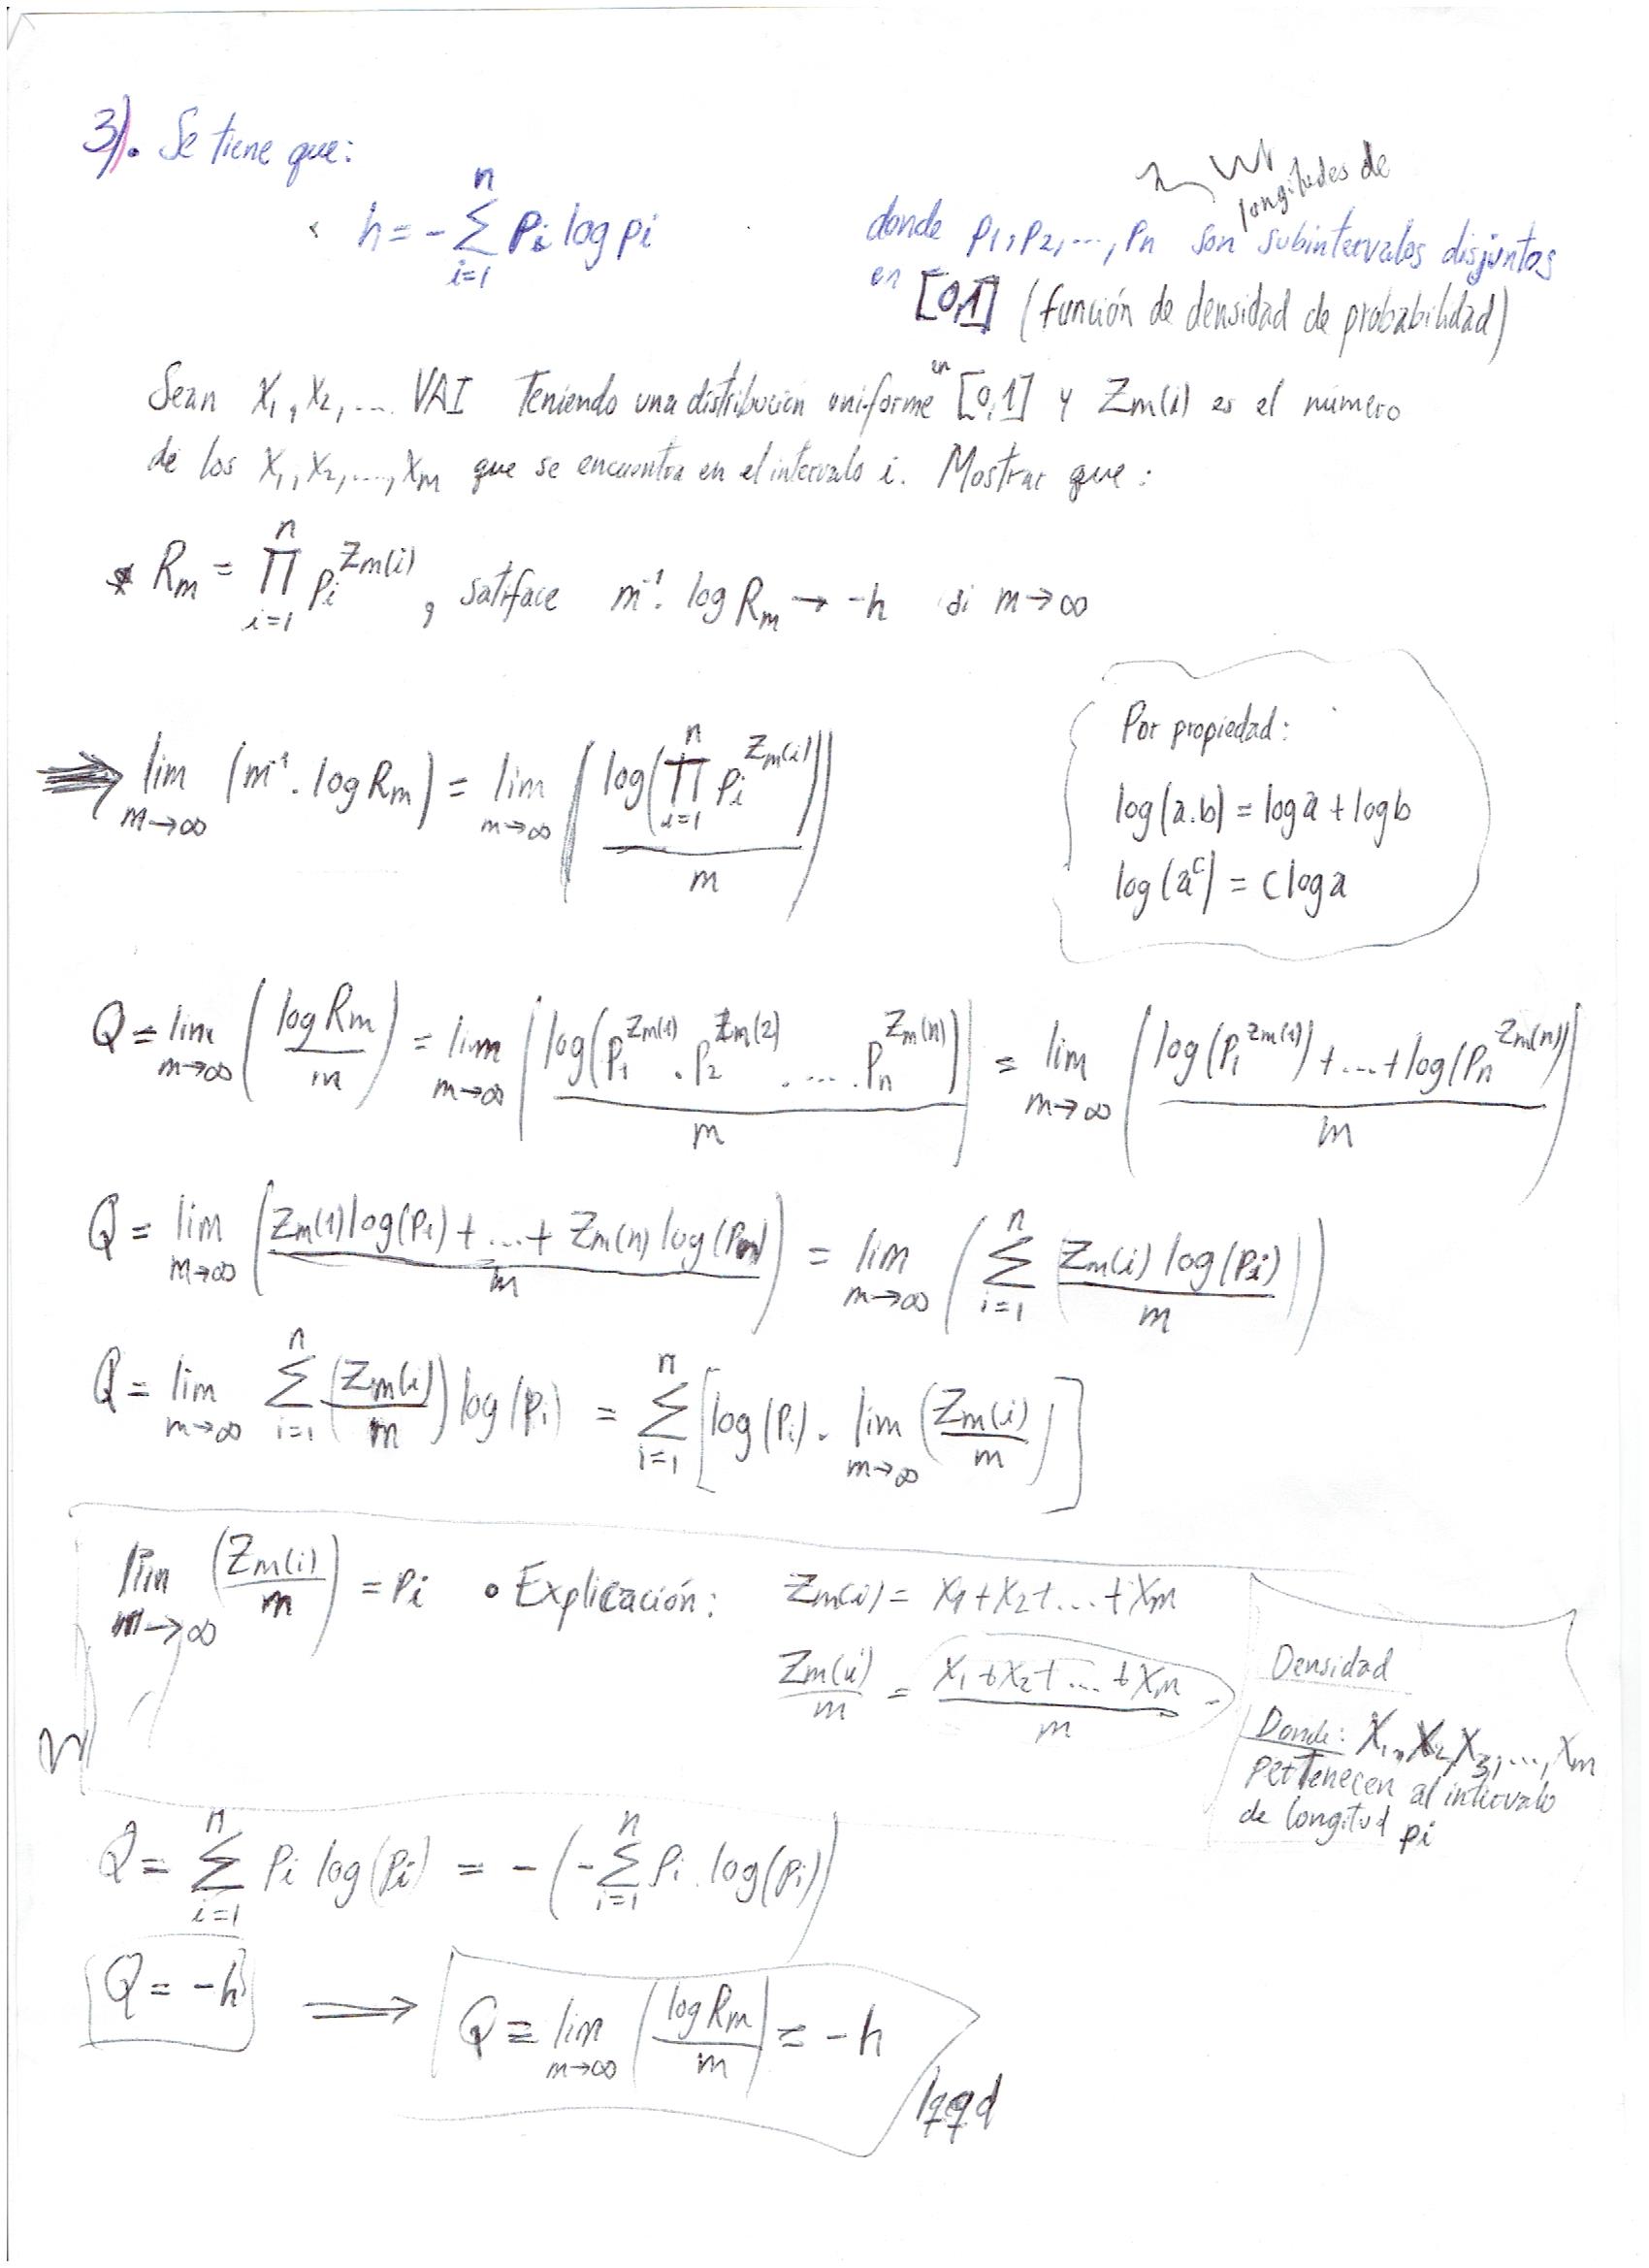 3). Se tiene que:
h = - \sum_{i=1}^{n} p_i log p_i
longitudes de
donde p_1, p_2, ..., p_n son subintervalos disjuntos
en [0,1] (función de densidad de probabilidad)
Sean X_1, X_2, .... VAI Teniendo una distribución uniforme en [0,1] y Z_m(i) es el número
de los X_1, X_2, ..., X_m que se encuentra en el intervalo i. Mostrar que:
* R_m = \prod_{i=1}^{n} p_i^{Z_m(i)}, satiface m^{-1}. log R_m → -h si m → ∞
⇒ lim_{m→∞} (m^{-1}. log R_m) = lim_{m→∞} ( log( \prod_{i=1}^{n} p_i^{Z_m(i)} ) / m )
Por propiedad:
log(a.b) = log a + log b
log(a^c) = c log a
Q = lim_{m→∞} ( log R_m / m ) = lim_{m→∞} ( log( p_1^{Z_m(1)} . p_2^{Z_m(2)} . .... . p_n^{Z_m(n)} ) / m ) = lim_{m→∞} ( log(p_1^{Z_m(1)}) + .... + log(p_n^{Z_m(n)}) / m )
Q = lim_{m→∞} ( Z_m(1) log(p_1) + .... + Z_m(n) log(p_n) / m ) = lim_{m→∞} ( \sum_{i=1}^{n} ( Z_m(i) log(p_i) / m ) )
Q = lim_{m→∞} \sum_{i=1}^{n} ( Z_m(i) / m ) log(p_i) = \sum_{i=1}^{n} [ log(p_i) . lim_{m→∞} ( Z_m(i) / m ) ]
lim_{m→∞} ( Z_m(i) / m ) = p_i • Explicación: Z_m(i) = X_1 + X_2 + .... + X_m
Z_m(i) / m = X_1 + X_2 + .... + X_m / m
Densidad
Donde: X_1, X_2, X_3, ..., X_m
pertenecen al intervalo
de longitud p_i
Q = \sum_{i=1}^{n} p_i log(p_i) = - ( - \sum_{i=1}^{n} p_i . log(p_i) )
Q = -h ⟹ Q = lim_{m→∞} ( log R_m / m ) = -h
lqqd